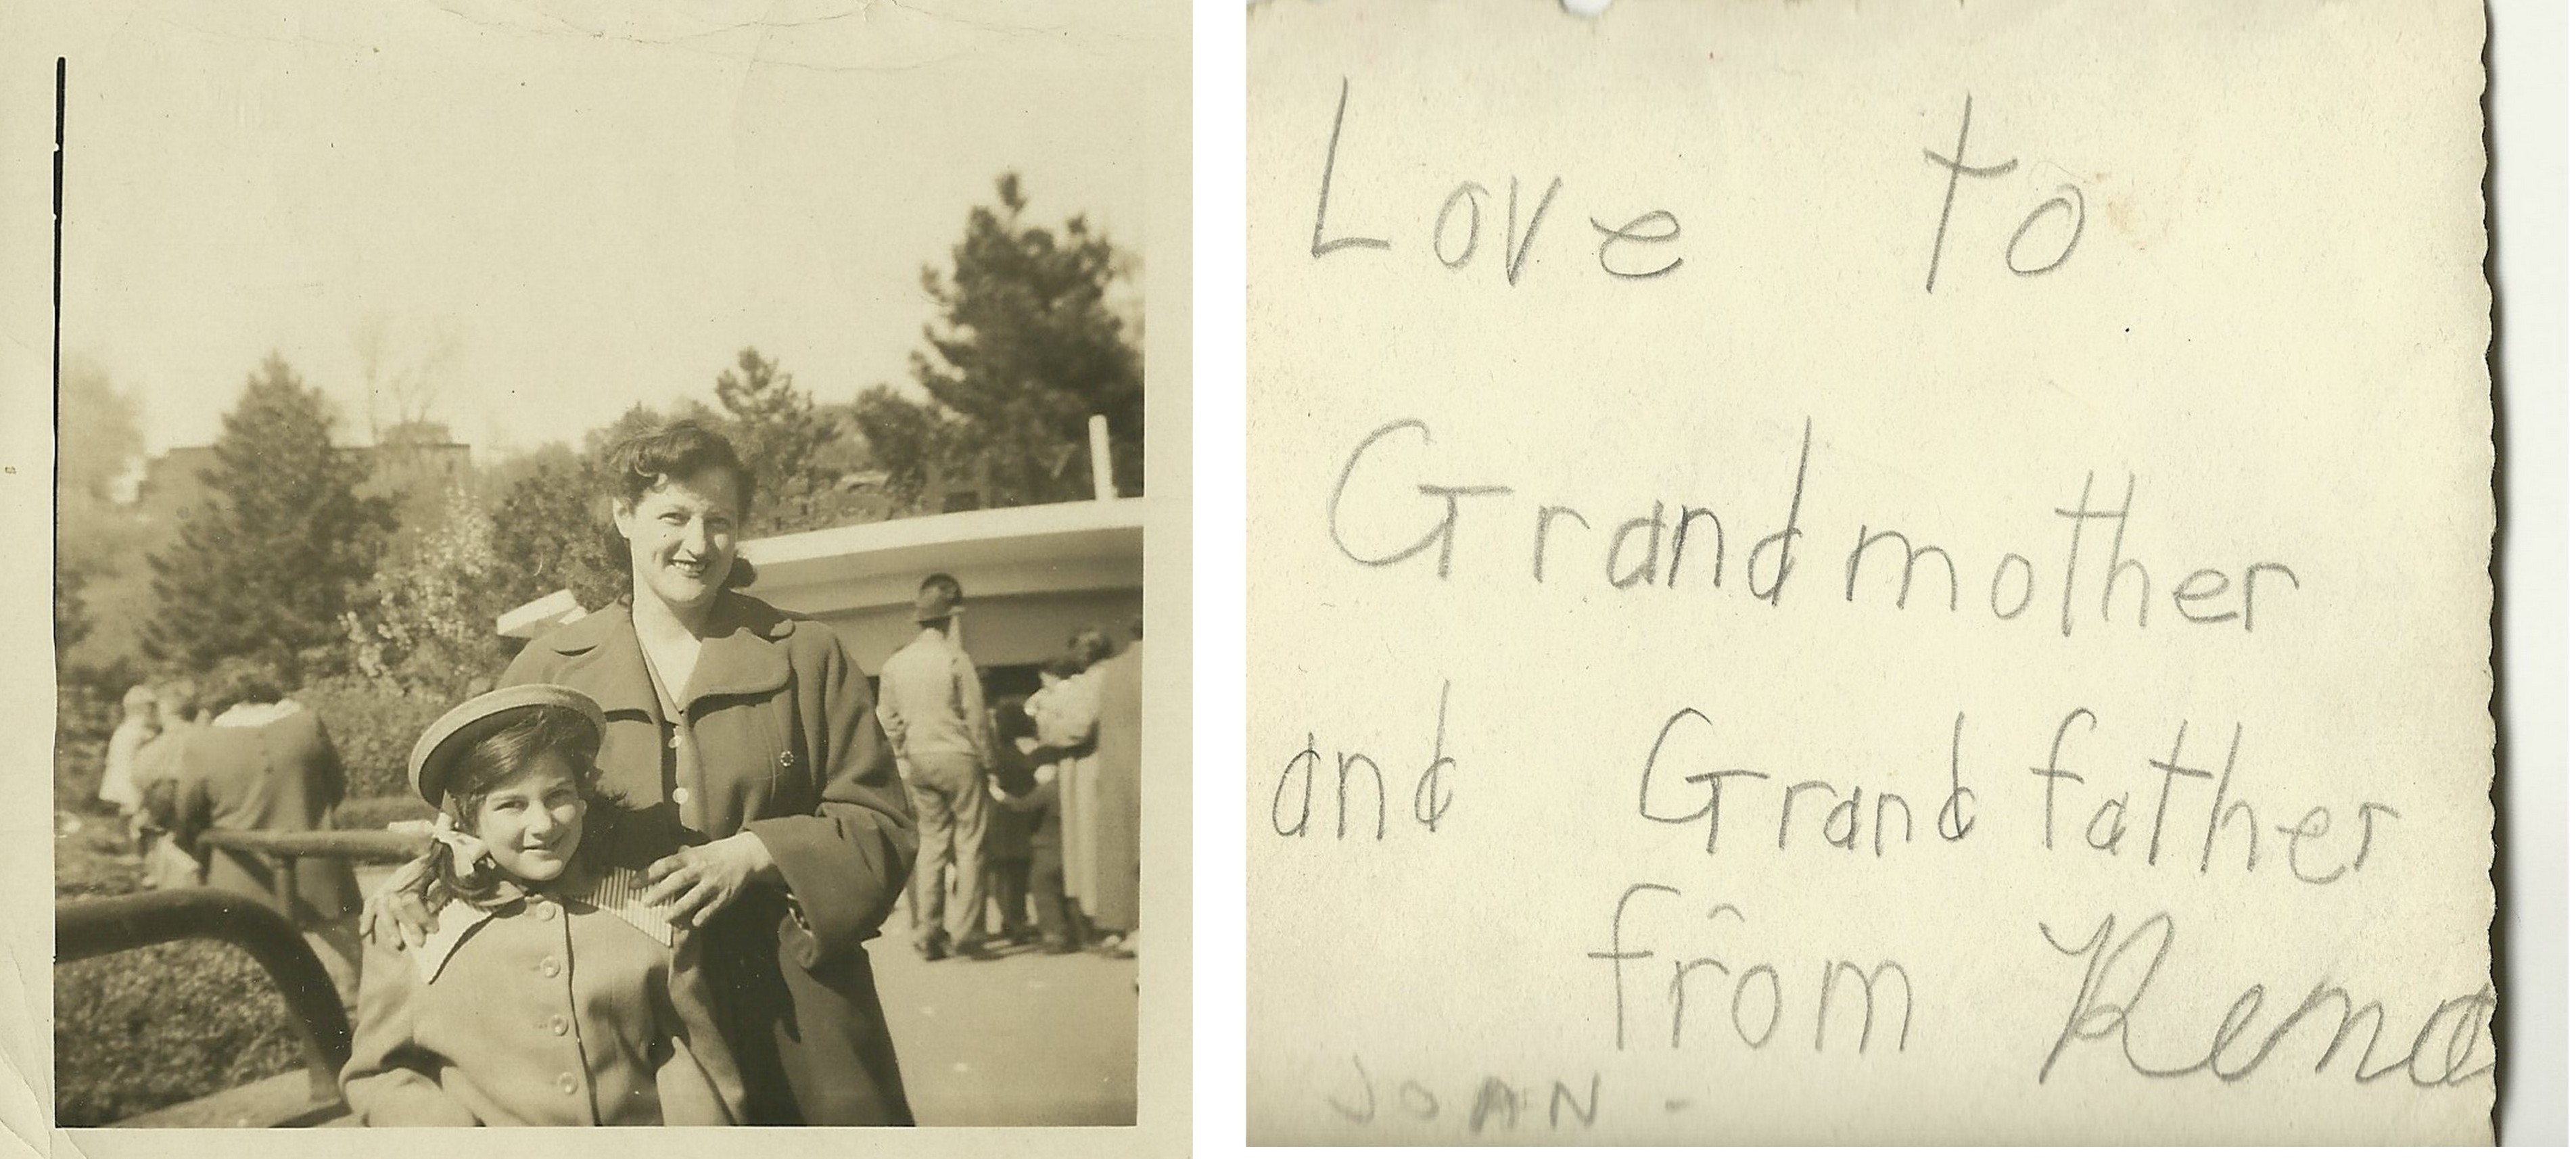 Love to
Grandmother
and Grandfather
from Rena
JOAN -